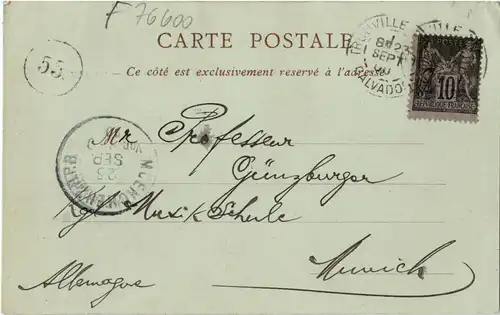 F 76600
CARTE POSTALE
Ce côté est exclusivement reservé à l'adresse
55.
TROUVILLE
8E 23
SEPT
CALVADOS
POSTES
10
REPUBLIQUE FRANÇAISE
Mr Professeur
Günzburger
Kgl Musik Schule
Munich
Allemagne
25
SEP